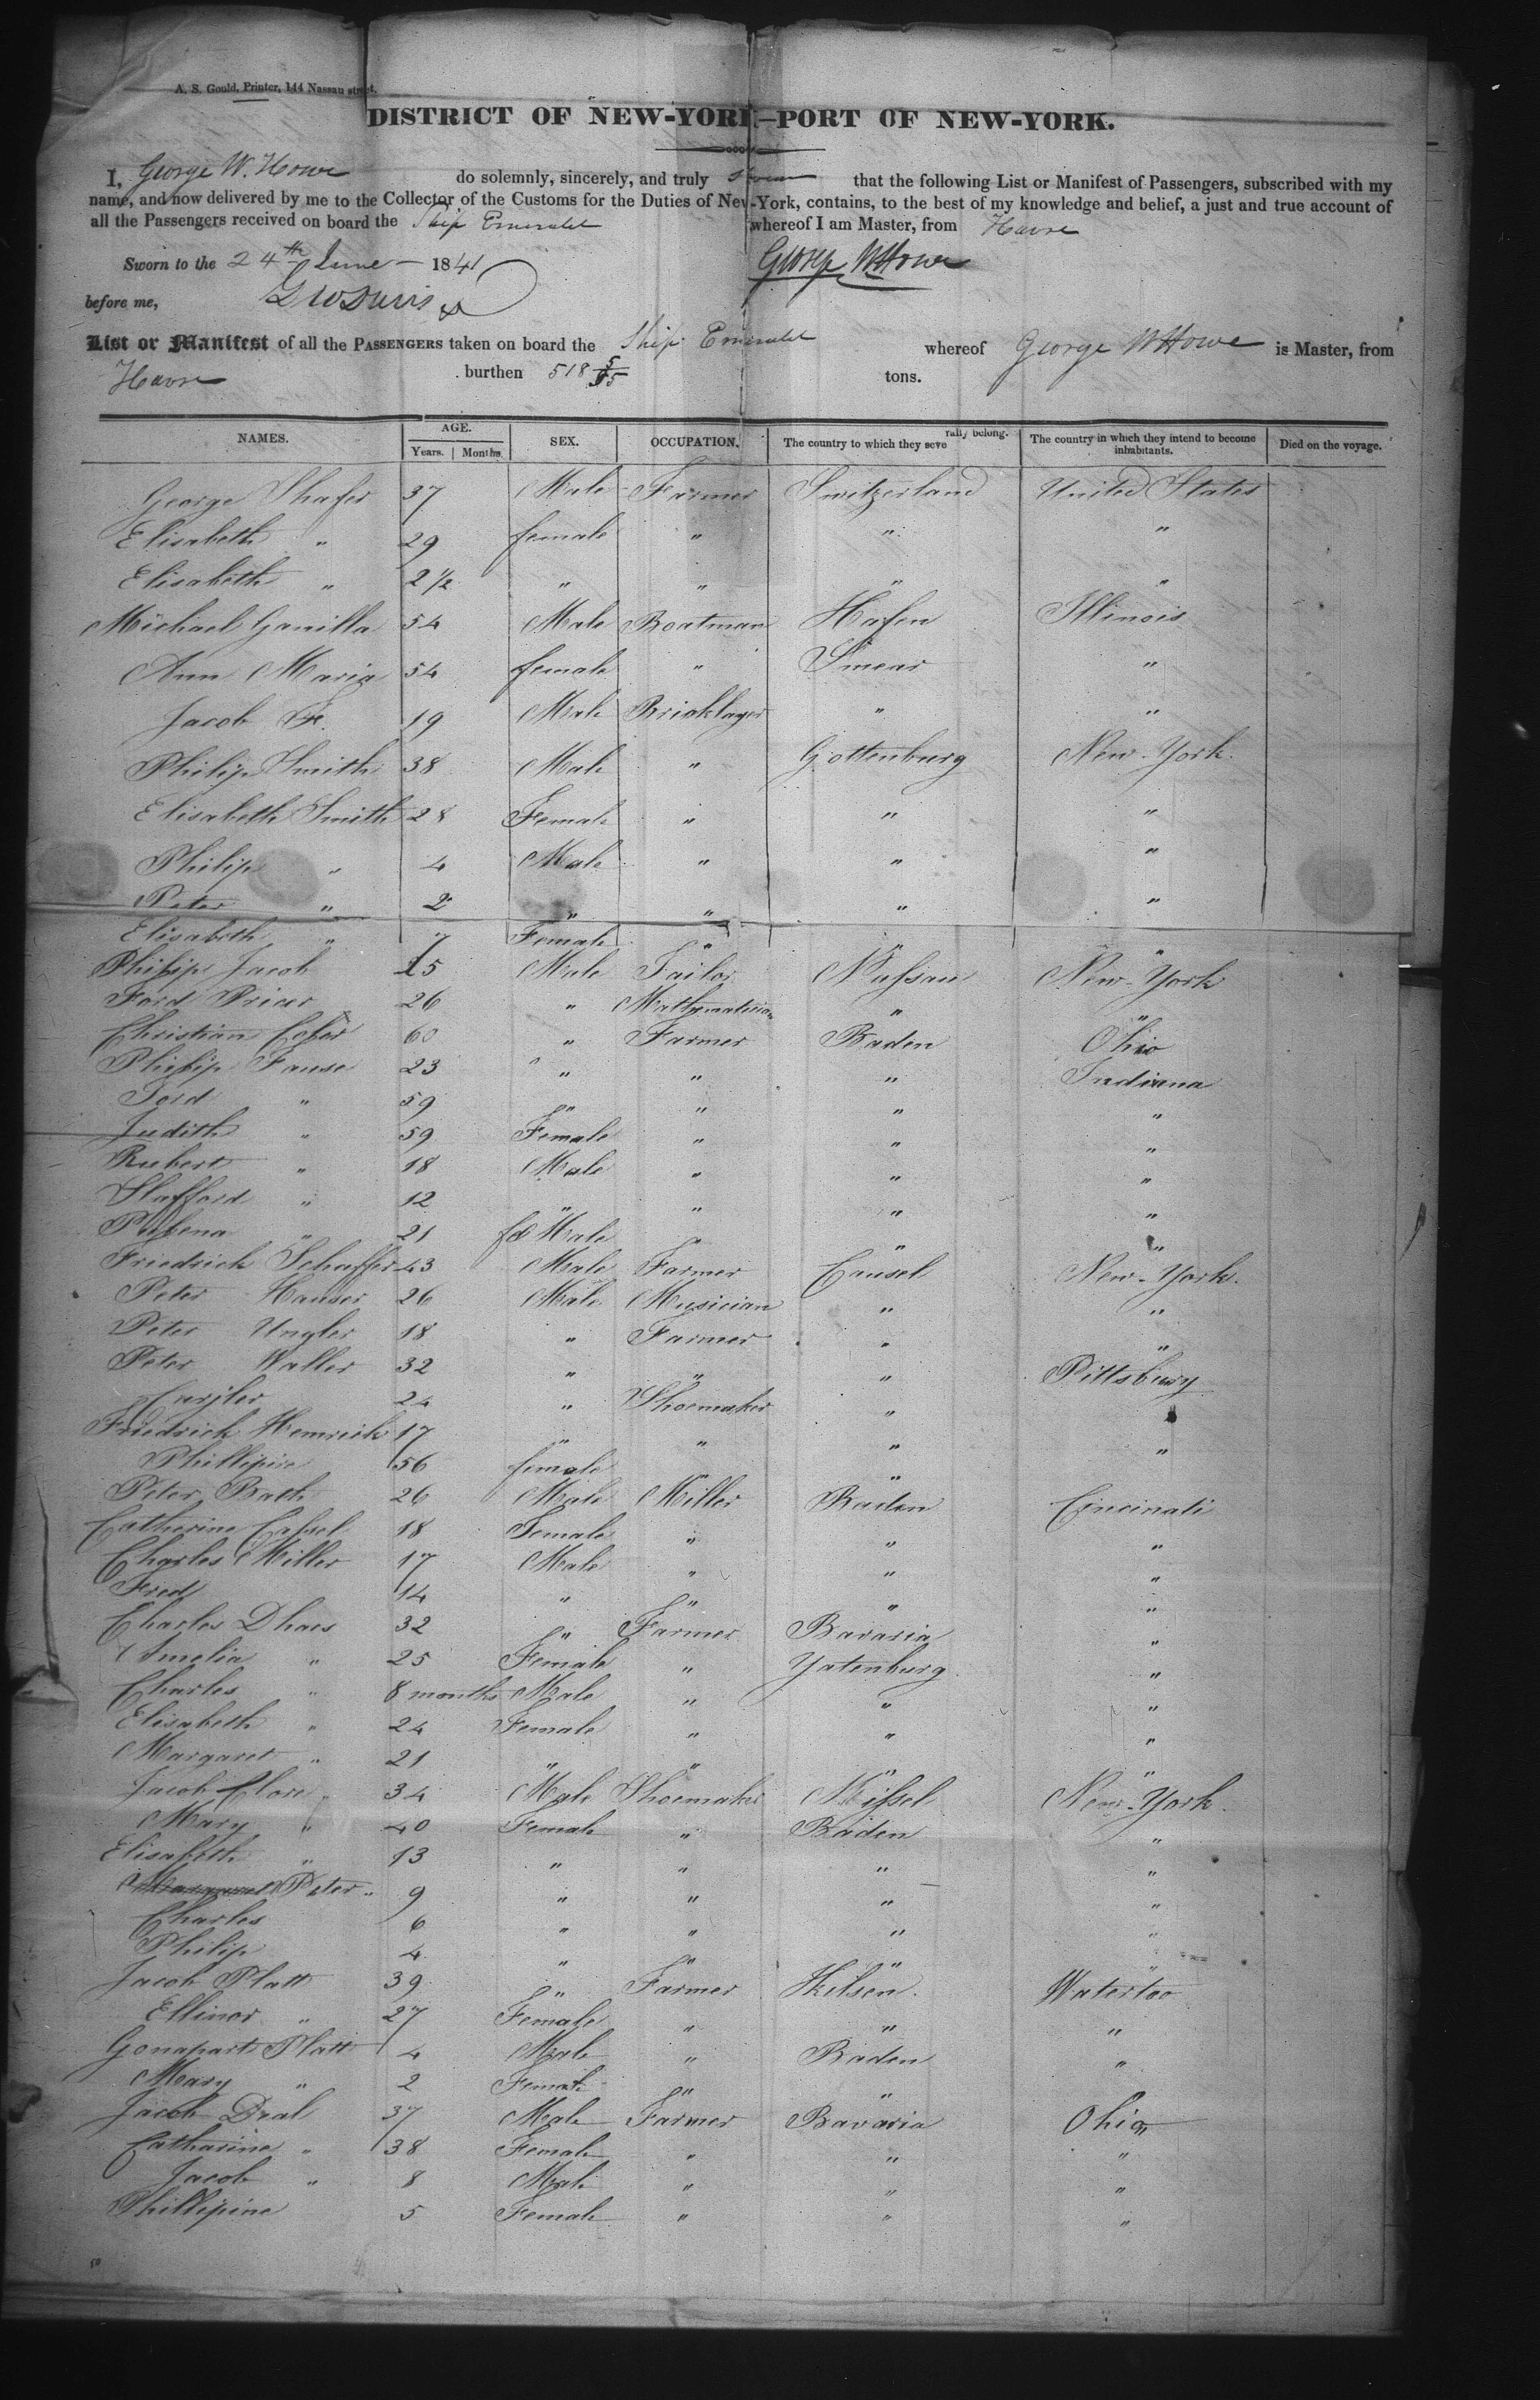 A. S. Gould, Printer, 144 Nassau street.
DISTRICT OF NEW-YORK—PORT OF NEW-YORK.
I, George W. Howe do solemnly, sincerely, and truly swear that the following List or Manifest of Passengers, subscribed with my
name, and now delivered by me to the Collector of the Customs for the Duties of New-York, contains, to the best of my knowledge and belief, a just and true account of
all the Passengers received on board the Ship Emerald whereof I am Master, from Havre
Sworn to the 24th June 1841 George W Howe
before me,
List or Manifest of all the PASSENGERS taken on board the Ship Emerald whereof George W Howe is Master, from
Havre burthen 518 tons.
NAMES. AGE. Years. Months. SEX. OCCUPATION. The country to which they severally belong. The country in which they intend to become inhabitants. Died on the voyage.
George Shafer 37 Male Farmer Switzerland United States
Elisabeth " 29 female " " "
Elisabeth " 2 1/2 " " " "
Michael Ganilla 54 Male Boatman Hafen Illinois
Ann Maria 54 female " "
Jacob 19 Male Bricklayer " "
Philip Smith 38 Male " Gottenburg New-York.
Elisabeth Smith 28 Female " " "
Philip " 4 Male " " "
Peter " 2 " " " "
Elisabeth " 7 Female " " "
Philip Jacob 15 Male Tailor Nassau New-York
26 " Mathematician " "
Christian 60 " Farmer Baden Ohio
Philip Fause 23 " " " Indiana
" 59 " " " "
Judith " 59 Female " " "
Rubert " 18 Male " " "
Stafford " 12 " " " "
" 21 feMale " " "
Friedrick Schaffer 43 Male Farmer Causel New-York.
Peter Hauser 26 Male Musician " "
Peter Ungler 18 " Farmer " "
Peter Waller 32 " " " Pittsburg
24 " Shoemaker "
Friedrick Hemrick 17 " " " "
Phillipine 56 female " "
Peter Bach 26 Male Miller Baden Cincinati
Catherine Cassel 18 Female " " "
Charles Miller 17 Male " " "
Fred 14 " " " "
Charles Dhaes 32 " Farmer Bavaria "
Amelia " 25 Female " Yatenburg "
Charles " 8 months Male " " "
Elisabeth " 24 Female " " "
Margaret " 21 " " " "
Jacob Clore " 34 Male Shoemaker New-York.
Mary " 40 Female " Baden "
Elisabeth " 13 " " " "
Peter " 9 " " " "
Charles 6 " " " "
Philip 4 " " " "
Jacob Platt 39 " Farmer Waterloo
Ellinor " 27 Female " " "
Gonapart Platt 4 Male " Baden "
Mary " 2 Female " " "
Jacob Dral 37 Male Farmer Bavaria Ohio
Catharine " 38 Female " " "
Jacob " 8 Male " " "
Phillipine 5 Female " " "